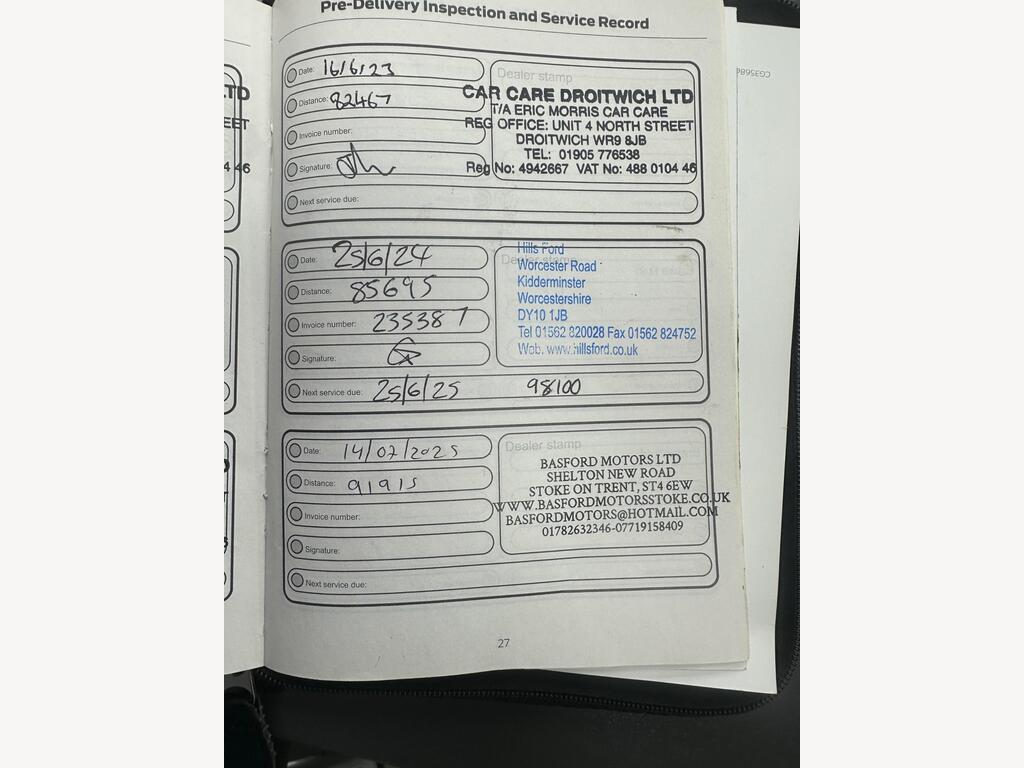 Pre-Delivery Inspection and Service Record
Date: 16/6/23
Distance: 82467
Invoice number:
Signature:
Next service due:
Dealer stamp
CAR CARE DROITWICH LTD
T/A ERIC MORRIS CAR CARE
REG OFFICE: UNIT 4 NORTH STREET
DROITWICH WR9 8JB
TEL: 01905 776538
Reg No: 4942667 VAT No: 488 0104 46
Date: 25/6/24
Distance: 85695
Invoice number: 235387
Signature:
Next service due: 25/6/25 98100
Dealer stamp
Hills Ford
Worcester Road
Kidderminster
Worcestershire
DY10 1JB
Tel 01562 820028 Fax 01562 824752
Web. www.hillsford.co.uk
Date: 14/07/2025
Distance: 91915
Invoice number:
Signature:
Next service due:
Dealer stamp
BASFORD MOTORS LTD
SHELTON NEW ROAD
STOKE ON TRENT, ST4 6EW
WWW.BASFORDMOTORSSTOKE.CO.UK
BASFORDMOTORS@HOTMAIL.COM
01782632346-07719158409
27
TD
EET
4 46